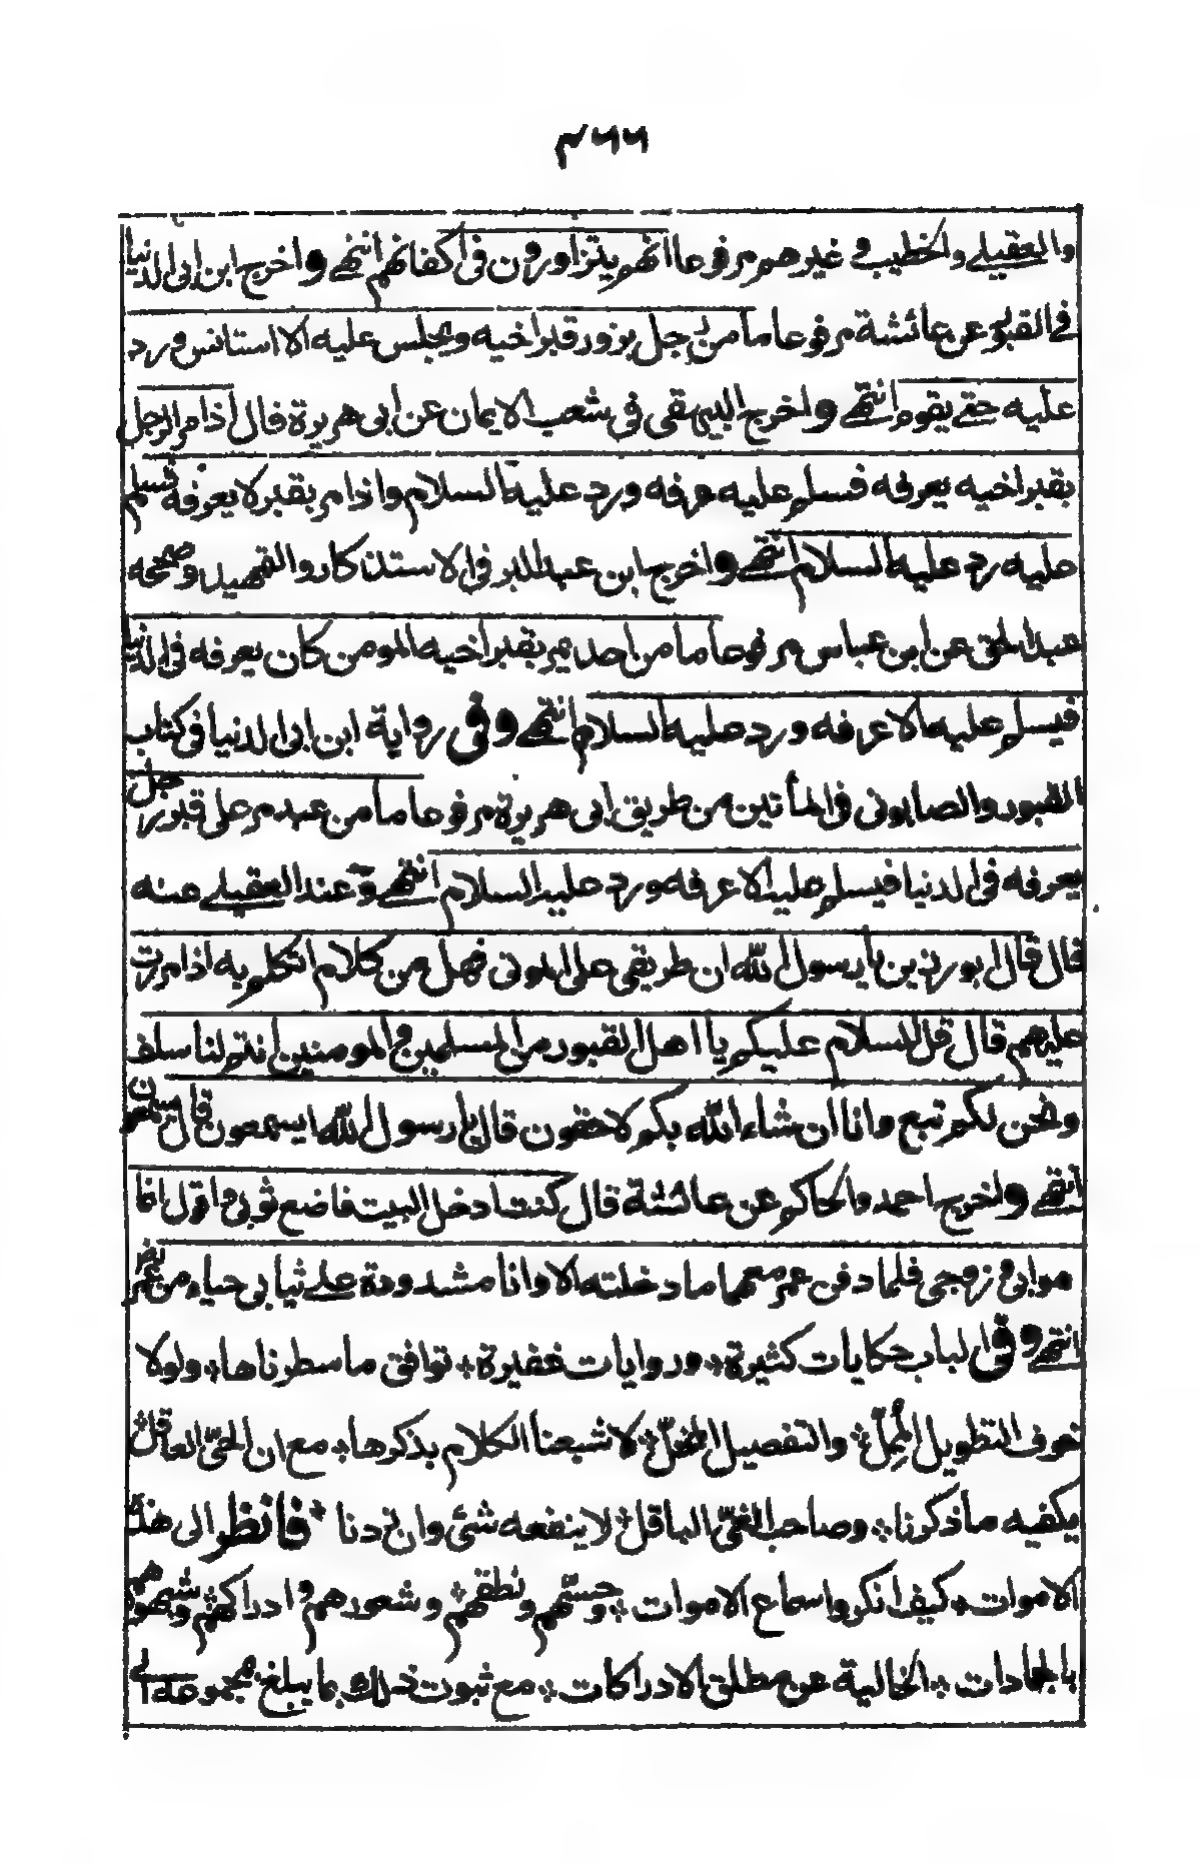 ٤٦٦
والعقيلے والخطيب فے غيرهم مرفوعا انهم يتزاورون فى اكفانهم انتهے واخرج ابن ابى الدنيا
فے القبور عن عائشة مرفوعا ما من رجل يزور قبر اخيه ويجلس عليه الا استانس ورد
عليه حتے يقوم انتهے واخرج البيهقى فى شعب الايمان عن ابى هريرة قال اذا مر الرجل
بقبر اخيه يعرفه فسلم عليه عرفه ورد عليه السلام واذا مر بقبر لا يعرفه فسلم
عليه رد عليه السلام انتهے واخرج ابن عبد البر فى الاستذكار والتمهيد وصححه
عبد الحق عن ابن عباس مرفوعا ما من احد يمر بقبر اخيه المومن كان يعرفه فى الدنيا
فيسلم عليه الا عرفه ورد عليه السلام انتهے وفى رواية ابن ابى الدنيا فى كتاب
القبور والصابونى فى المأتين من طريق ابى هريرة مرفوعا ما من عبد مر على قبر رجل
يعرفه فى الدنيا فيسلم عليه الا عرفه ورد عليه السلام انتهے وعند العقيلے عنه
قال قال ابو رزين يا رسول الله ان طريقى على الموتى فهل من كلام اتكلم به اذا مررت
عليهم قال قل السلام عليكم يا اهل القبور من المسلمين والمومنين انتم لنا سلف
ونحن لكم تبع وانا ان شاء الله بكم لاحقون قال يا رسول الله ايسمعون قال يسمعون
انتهے واخرج احمد والحاكم عن عائشة قال كنت ادخل البيت فاضع ثوبى واقول انما
هو ابى وزوجى فلما دفن عمر معهما ما دخلته الا وانا مشدودة علے ثيابى حياء من عمر
انتهے وفى الباب حكايات كثيرة ٭ وروايات غفيرة ٭ توافق ما سطرناها ٭ ولولا
خوف التطويل المُمِلّ ٭ والتفصيل المُخِلّ ٭ لاشبعنا الكلام بذكرها ٭ مع ان الحىّ العاقل
يكفيه ما ذكرنا ٭ وصاحب الغىّ الباقل ٭ لا ينفعه شئ وان زدنا ٭ فانظر الى هذه
الاموات ٭ كيف انكروا سماع الاموات ٭ وحسّهم ونطقهم ٭ وشعورهم وادراكهم ٭ وشبهوهم
بالجمادات ٭ الخالية عن مطلق الادراكات ٭ مع ثبوت ذلك بما يبلغ مجموعه الى